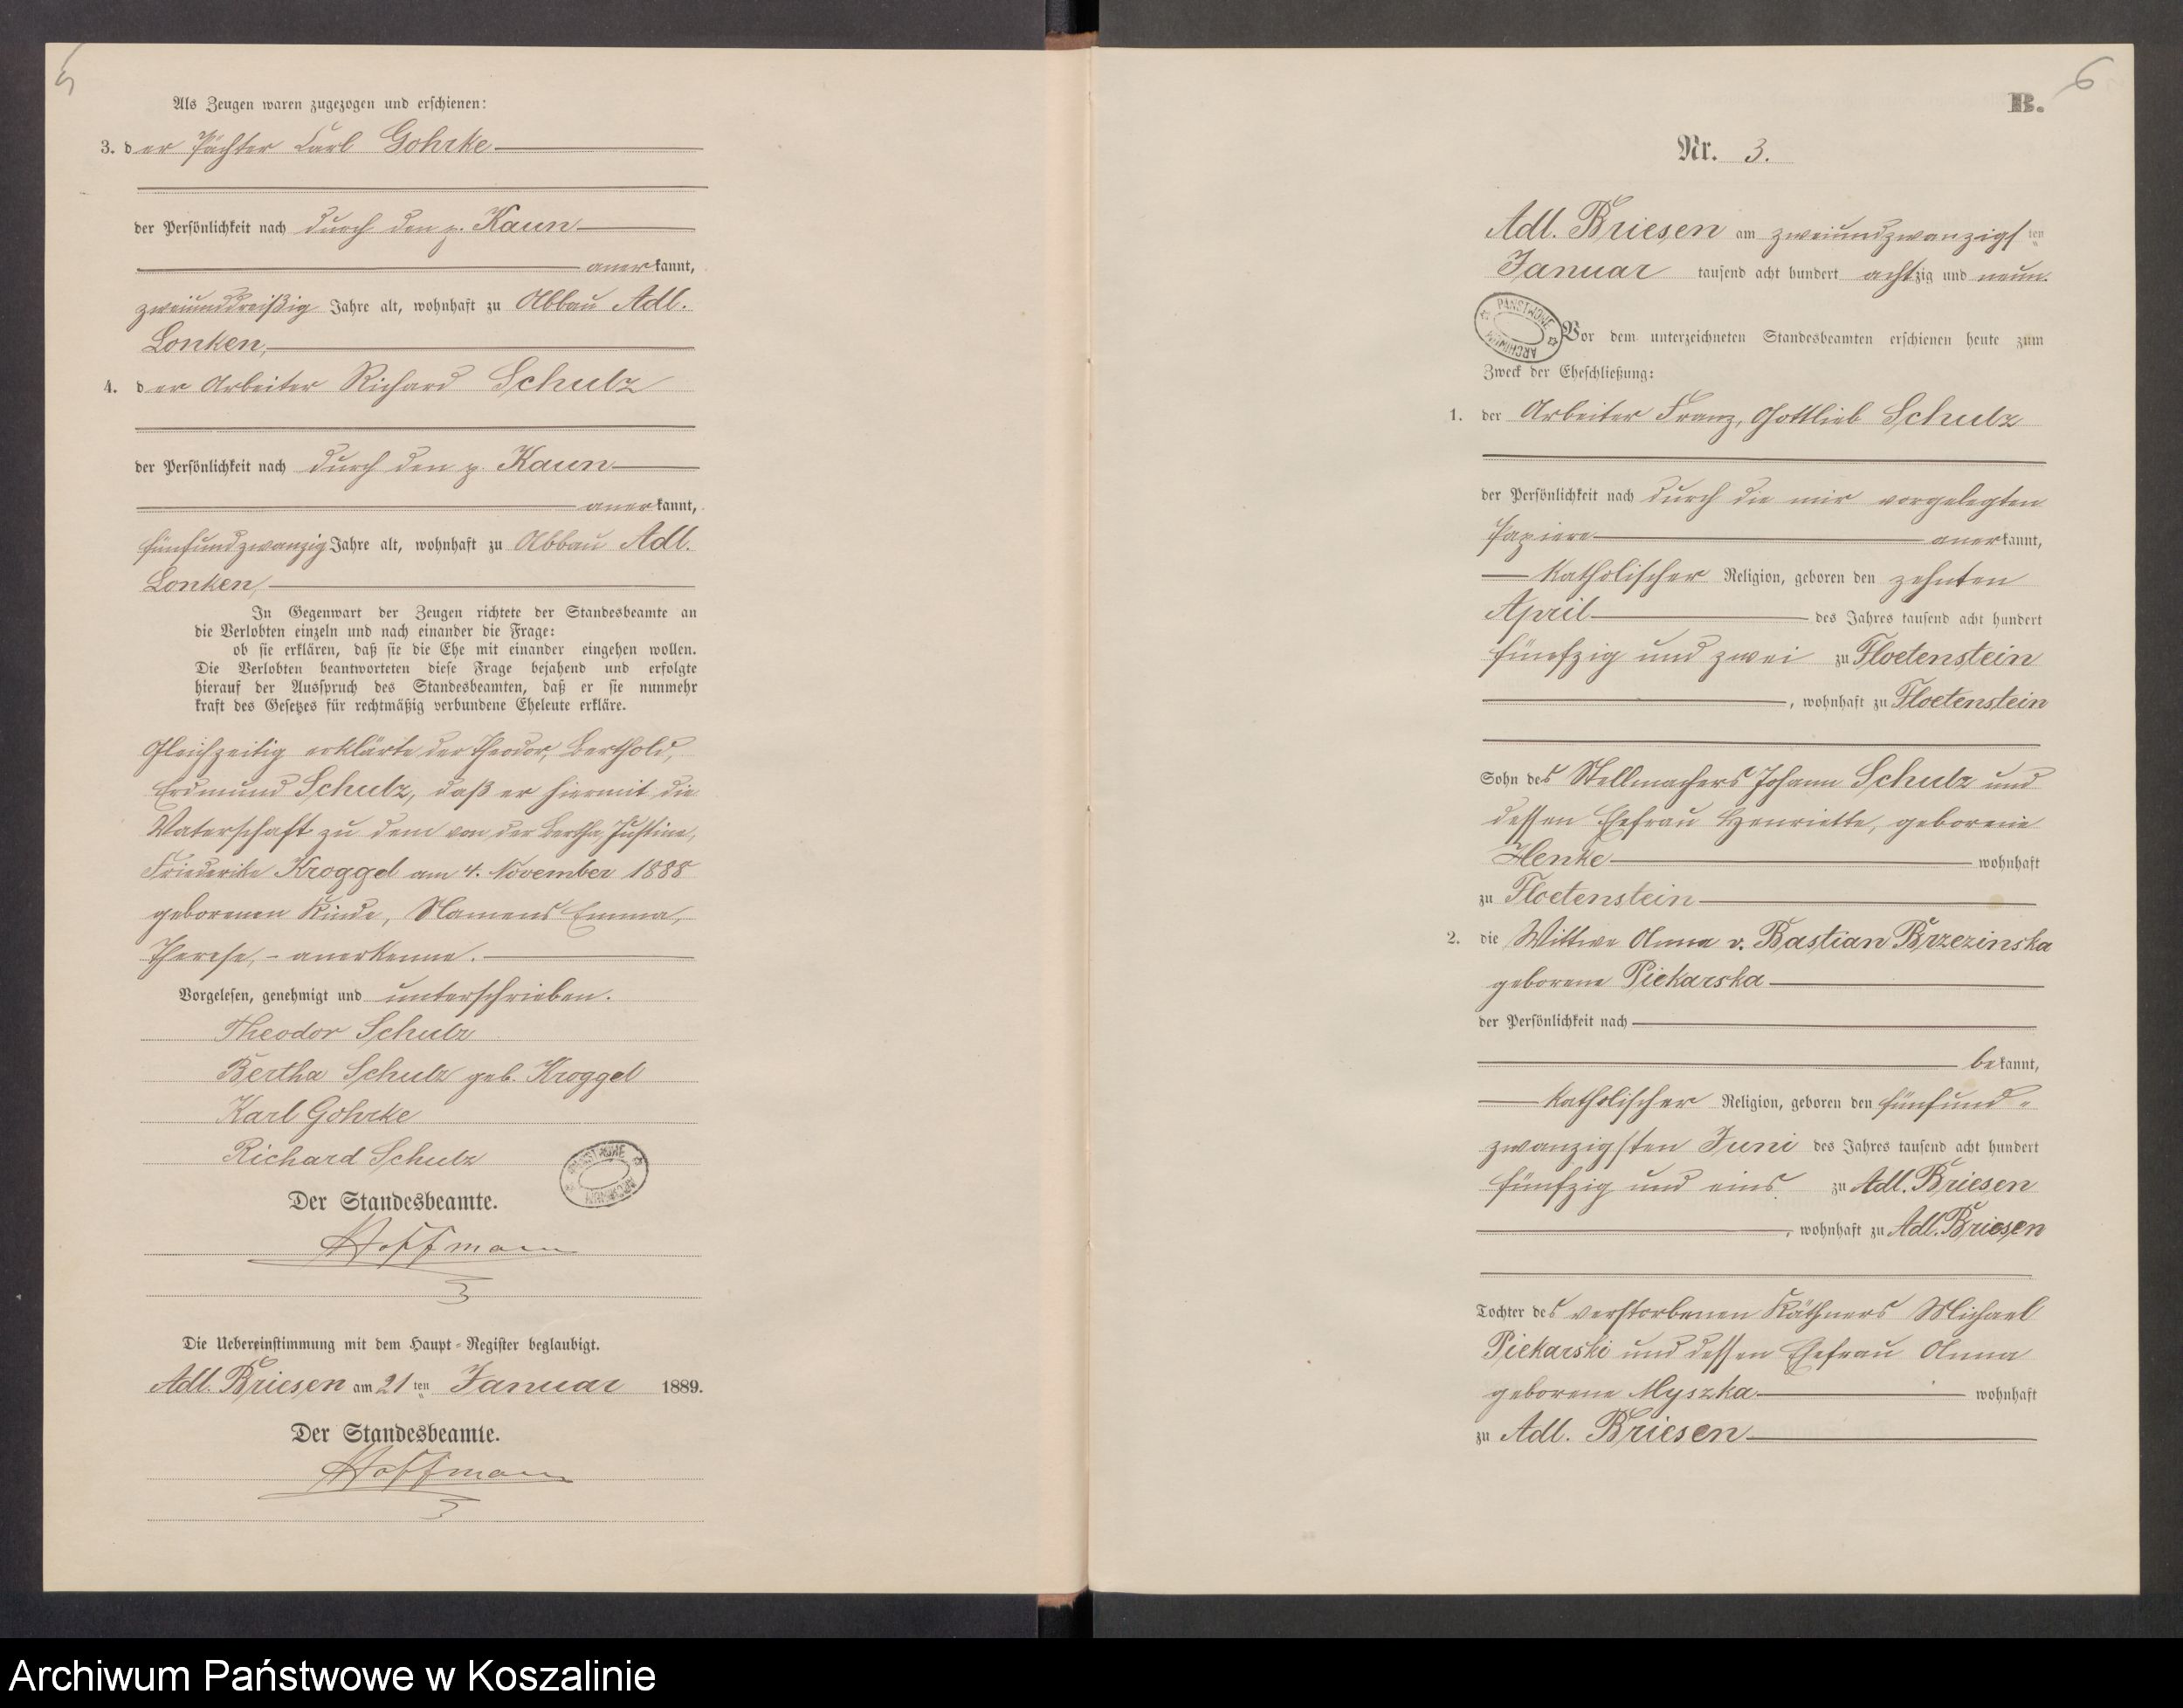 5
Als Zeugen waren zugezogen und erschienen:
3. der Pächter Carl Gohrke
der Persönlichkeit nach durch den p. Kaun
anerkannt,
zweiunddreißig Jahre alt, wohnhaft zu Abbau Adl.
Lonken,
4. der Arbeiter Richard Schulz
der Persönlichkeit nach durch den p. Kaun
anerkannt,
fünfundzwanzig Jahre alt, wohnhaft zu Abbau Adl.
Lonken,
In Gegenwart der Zeugen richtete der Standesbeamte an
die Verlobten einzeln und nach einander die Frage:
ob sie erklären, daß sie die Ehe mit einander eingehen wollen.
Die Verlobten beantworteten diese Frage bejahend und erfolgte
hierauf der Ausspruch des Standesbeamten, daß er sie nunmehr
kraft des Gesetzes für rechtmäßig verbundene Eheleute erkläre.
Gleichzeitig erklärte der Theodor, Berthold,
Erdmund Schulz, daß er hiermit die
Vaterschaft zu dem von der Bertha, Justine,
Friederike Kroggel am 4. November 1888
geborenen Kinde, Namens Emma,
Therese, - anerkenne.
Vorgelesen, genehmigt und unterschrieben.
Theodor Schulz
Bertha Schulz geb. Kroggel
Karl Gohrke
Richard Schulz
PAŃSTWOWE ARCHIWUM
Der Standesbeamte.
Hoffmann
Die Uebereinstimmung mit dem Haupt-Register beglaubigt.
Adl. Briesen am 21 ten Januar 1889.
Der Standesbeamte.
Hoffmann
6
B.
Nr. 3.
Adl. Briesen am zweiundzwanzigsten
Januar tausend acht hundert achtzig und neun.
PAŃSTWOWE ARCHIWUM
Vor dem unterzeichneten Standesbeamten erschienen heute zum
Zweck der Eheschließung:
1. der Arbeiter Franz, Gottlieb Schulz
der Persönlichkeit nach durch die mir vorgelegten
Papiere anerkannt,
katholischer Religion, geboren den zehnten
April des Jahres tausend acht hundert
fünfzig und zwei zu Floetenstein
, wohnhaft zu Floetenstein
Sohn des Stellmachers Johann Schulz und
dessen Ehefrau Henriette, geborene
Henke wohnhaft
zu Floetenstein
2. die Wittwe Anna v. Bastian Brzezinska
geborene Piekarska
der Persönlichkeit nach
bekannt,
katholischer Religion, geboren den fünfund-
zwanzigsten Juni des Jahres tausend acht hundert
fünfzig und eins zu Adl. Briesen
, wohnhaft zu Adl. Briesen
Tochter des verstorbenen Käthners Michael
Piekarski und dessen Ehefrau Anna
geborene Myszka wohnhaft
zu Adl. Briesen
Archiwum Państwowe w Koszalinie